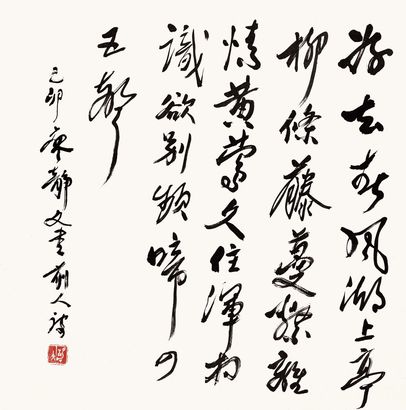 好去春風湖上亭
柳條藤蔓縈離
情黄鶯久住渾相
識欲别頻啼四
五聲
己卯廖靜文書前人詩